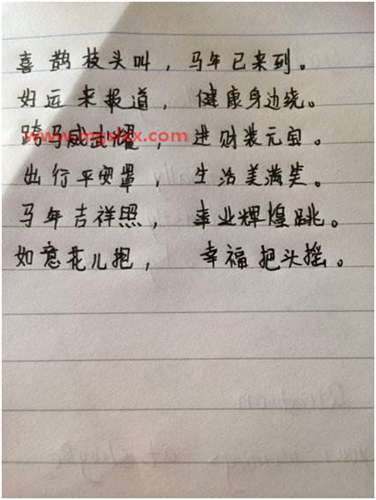 喜鹊枝头叫，马年已来到。
好运来报道，健康身边绕。
跨马威武耀，进财装元宝。
出行平安罩，生活美满笑。
马年吉祥照，事业辉煌跳。
如意花儿抱，幸福把头摇。